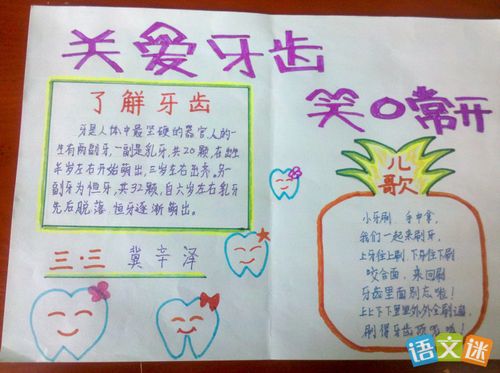 关爱牙齿
笑口常开
了解牙齿
牙是人体中最坚硬的器官,人的一
生有两副牙,一副是乳牙,共20颗,在出生
半岁左右开始萌出,三岁左右出齐。另一
副牙为恒牙,共32颗,自六岁左右乳牙
先后脱落 恒牙逐渐萌出。
三·三 冀辛泽
儿
歌
小牙刷 手中拿,
我们一起来刷牙,
上牙往上刷 下牙往下刷
咬合面,来回刷
牙齿里面别忘啦!
上上下下里里外外全刷遍
刷得牙齿
语文迷